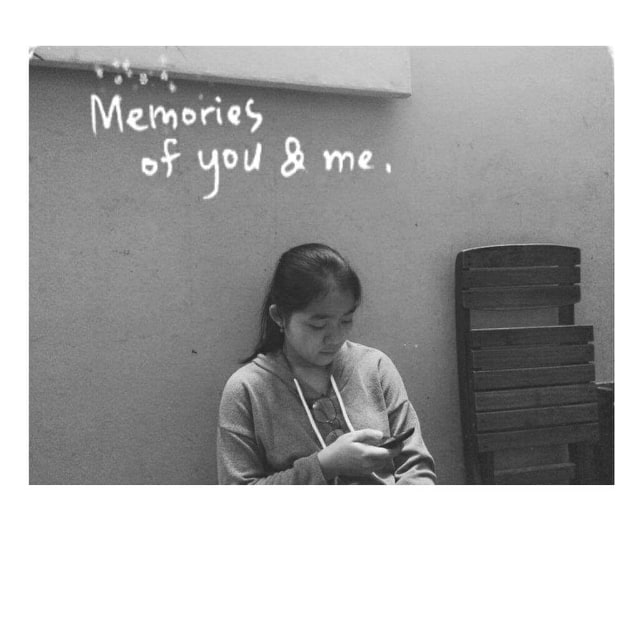 Memories
of you & me.